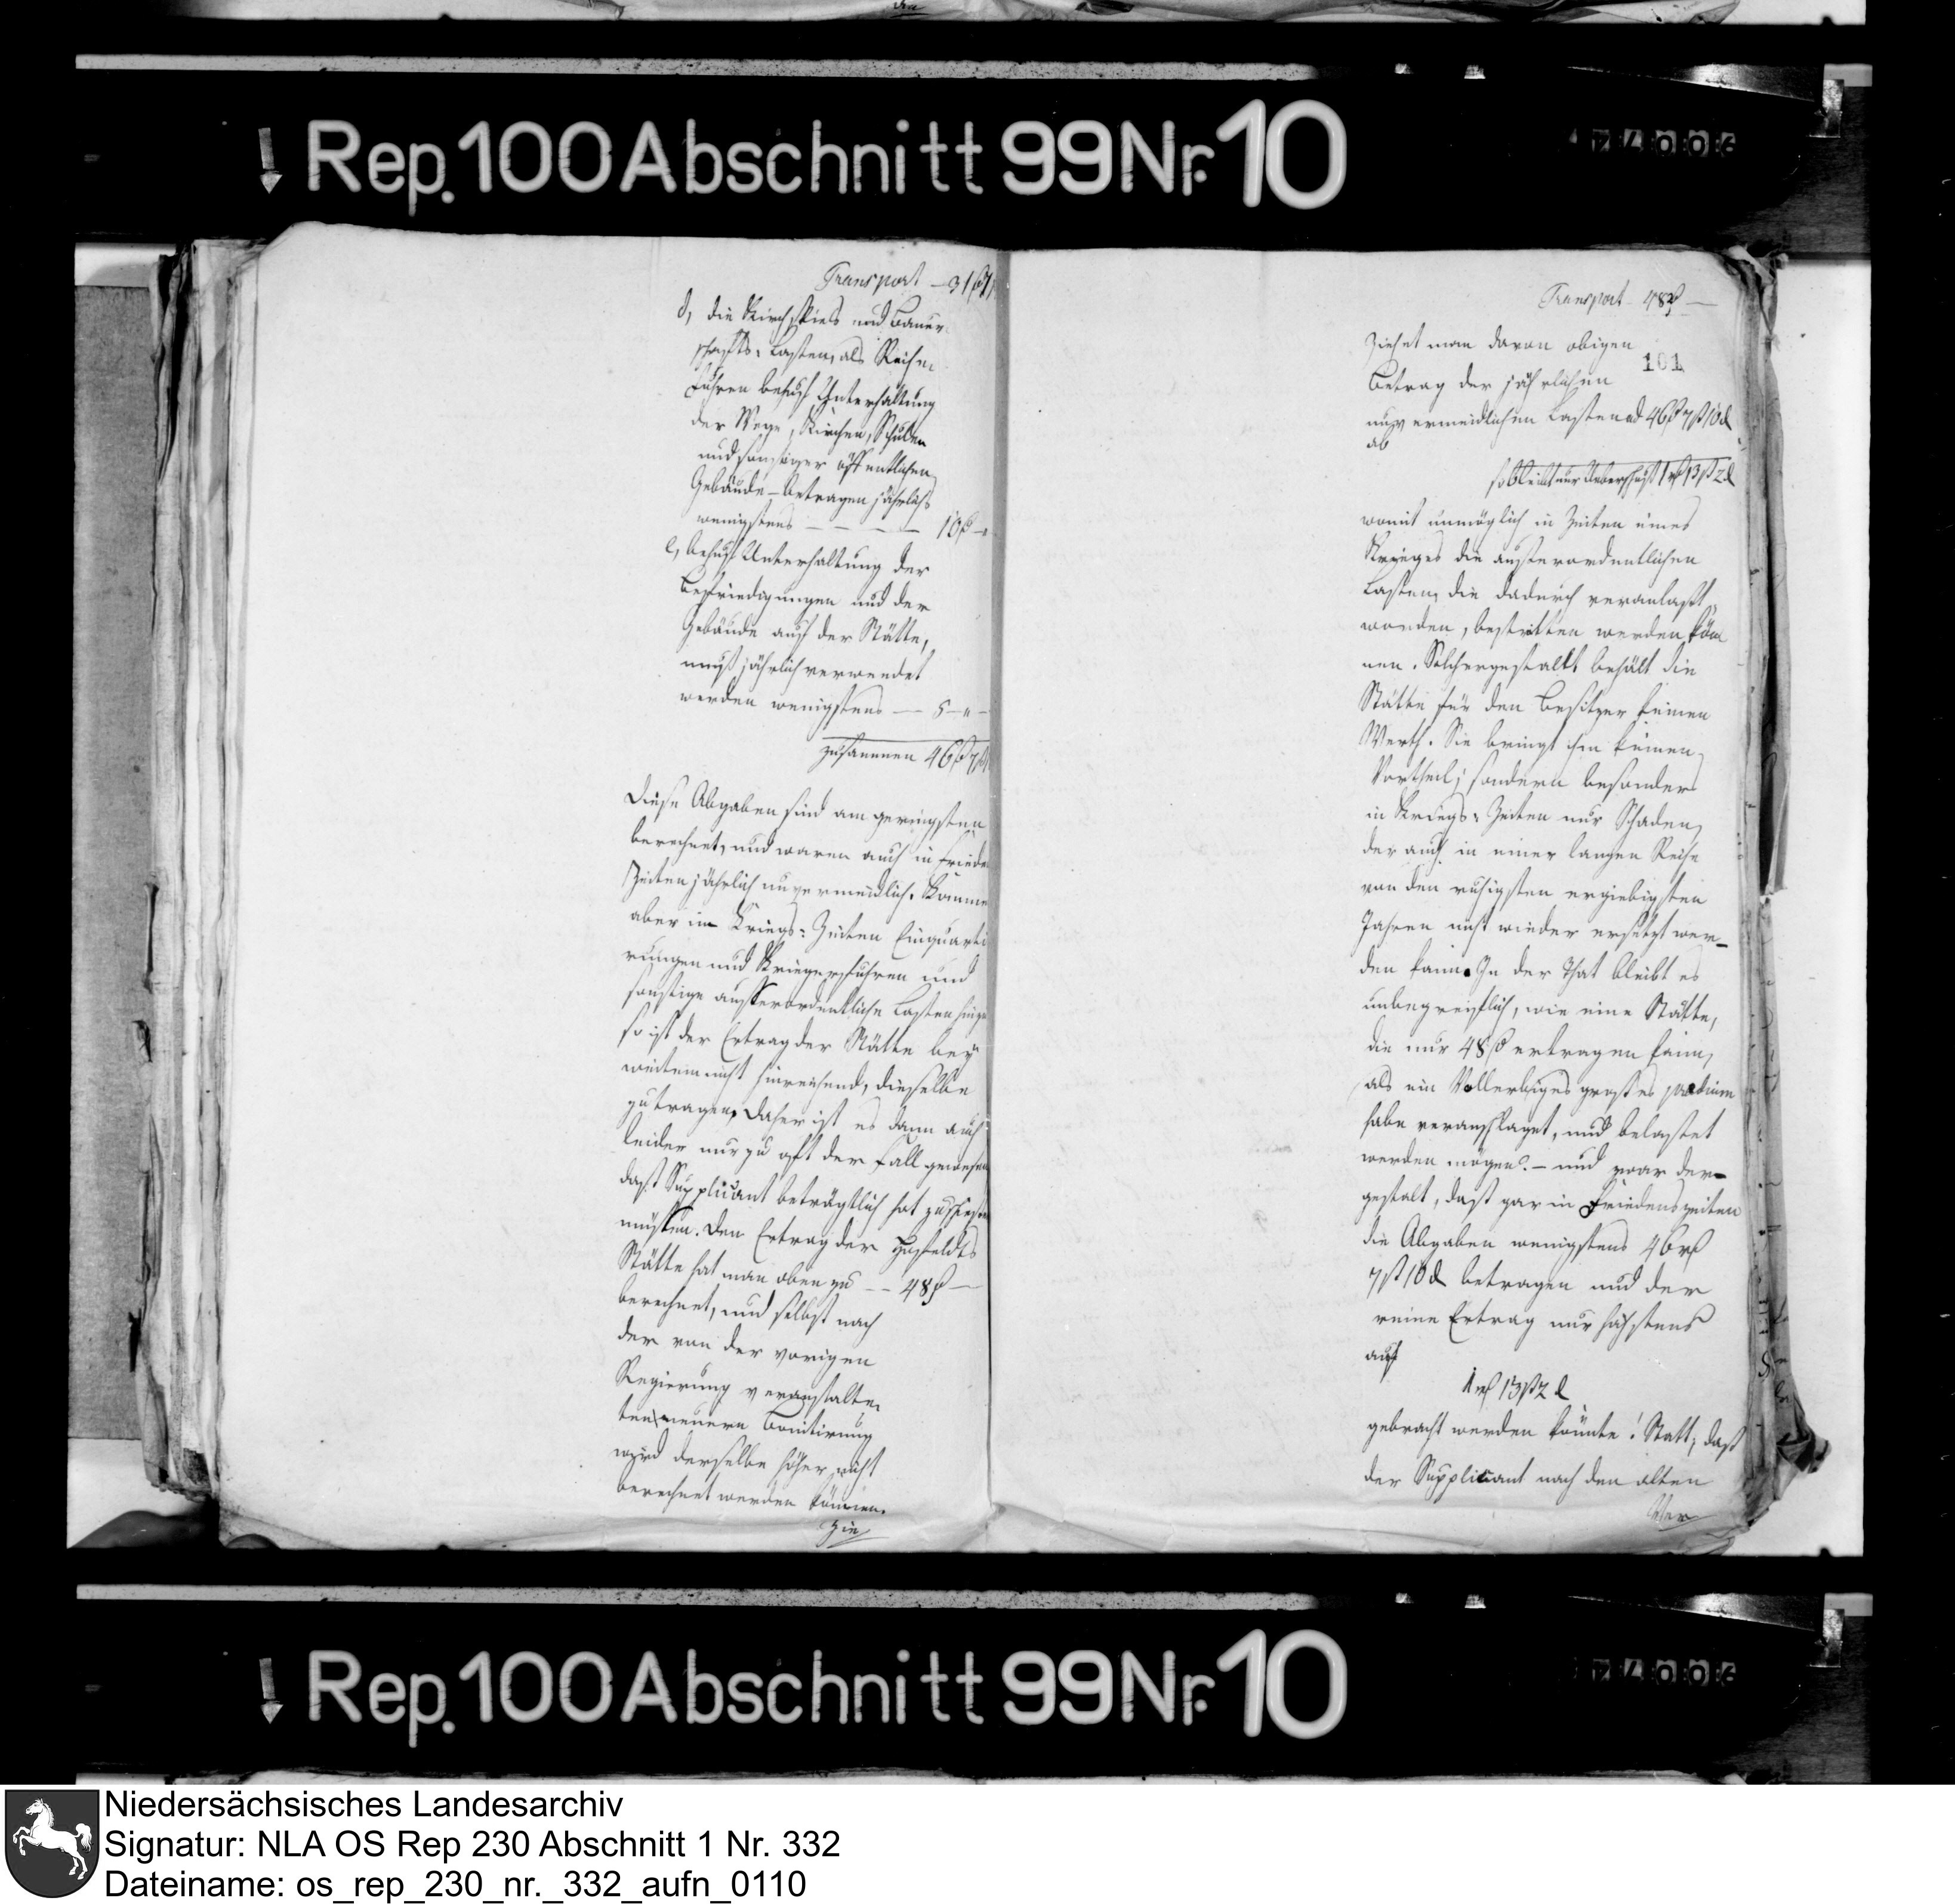 den
Rep. 100 Abschnitt 99 Nr. 10
Transport — 31
d, die Kirchspiels und Bauer-
schafts-Lasten, als Reihe-
Fuhren behuf Unterhaltung
der Wege, Kirchen, Schulen
und sonstiger öffentlichen
Gebäude — betragen jährlich
wenigstens — — — — 10
e, behuf Unterhaltung der
Befriedigungen und der
Gebäude auf der Stätte,
muß jährlich verwendet
werden wenigstens — 5 —
zusammen 46 7
Diese Abgaben sind am geringsten
berechnet, und waren auch in Friedens
Zeiten jährlich unvermeidlich. Kommen
aber im Kriegs-Zeiten Einquarti
rungen und Kriegerfuhren und
sonstige ausserordentliche Lasten hinzu
so ist der Ertrag der Stätte bey
weitem nicht hinreichend, dieselbe
zu tragen, daher ist es dann auch
leider nur zu oft der Fall gewesen
daß Supplicant beträgtlich hat
müssen. Den Ertrag der
Stätte hat man oben zu — 48 —
berechnet, und selbst nach
der von der vorigen
Regierung veranstalte-
ten neuern Bonitirung
wird derselbe höher nicht
berechnet werden können.
Zie
Transport 48 —
101
Ziehet man davon obigen
Betrag der jährlichen
unvermeidlichen Lasten ad 46 7 10 d
ab
so bleibt nur Ueberschuß 1 13 2 d
womit unmöglich in Zeiten eines
Krieges die ausserordentlichen
Lasten, die dadurch veranlaßt
worden, bestritten werden kön
nen. Solchergestallt behält die
Stätte für den Besitzer keinen
Werth. Sie bringt ihm keinen
Vortheil; sondern besonders
in Kriegs-Zeiten nur Schaden,
der auch in einer langen Reihe
von den ruhigsten ergiebigsten
Jahren nicht wieder ersetzt wer-
den kann. In der That bleibt es
unbegreiflich, wie eine Stätte,
die nur 48 ertragen kann,
als ein Vollerbiges großes praedium
habe veranschlaget, und belastet
werden mögen? — und zwar der-
gestalt, daß gar in Friedenszeiten
die Abgaben wenigstens 46
7 10 d betragen und der
reine Ertrag nur höchstens
auf
1 13 2 d
gebracht werden könnte! Statt, daß
der Supplicant nach den alten
Ver
Rep. 100 Abschnitt 99 Nr. 10
Niedersächsisches Landesarchiv
Signatur: NLA OS Rep 230 Abschnitt 1 Nr. 332
Dateiname: os_rep_230_nr._332_aufn_0110